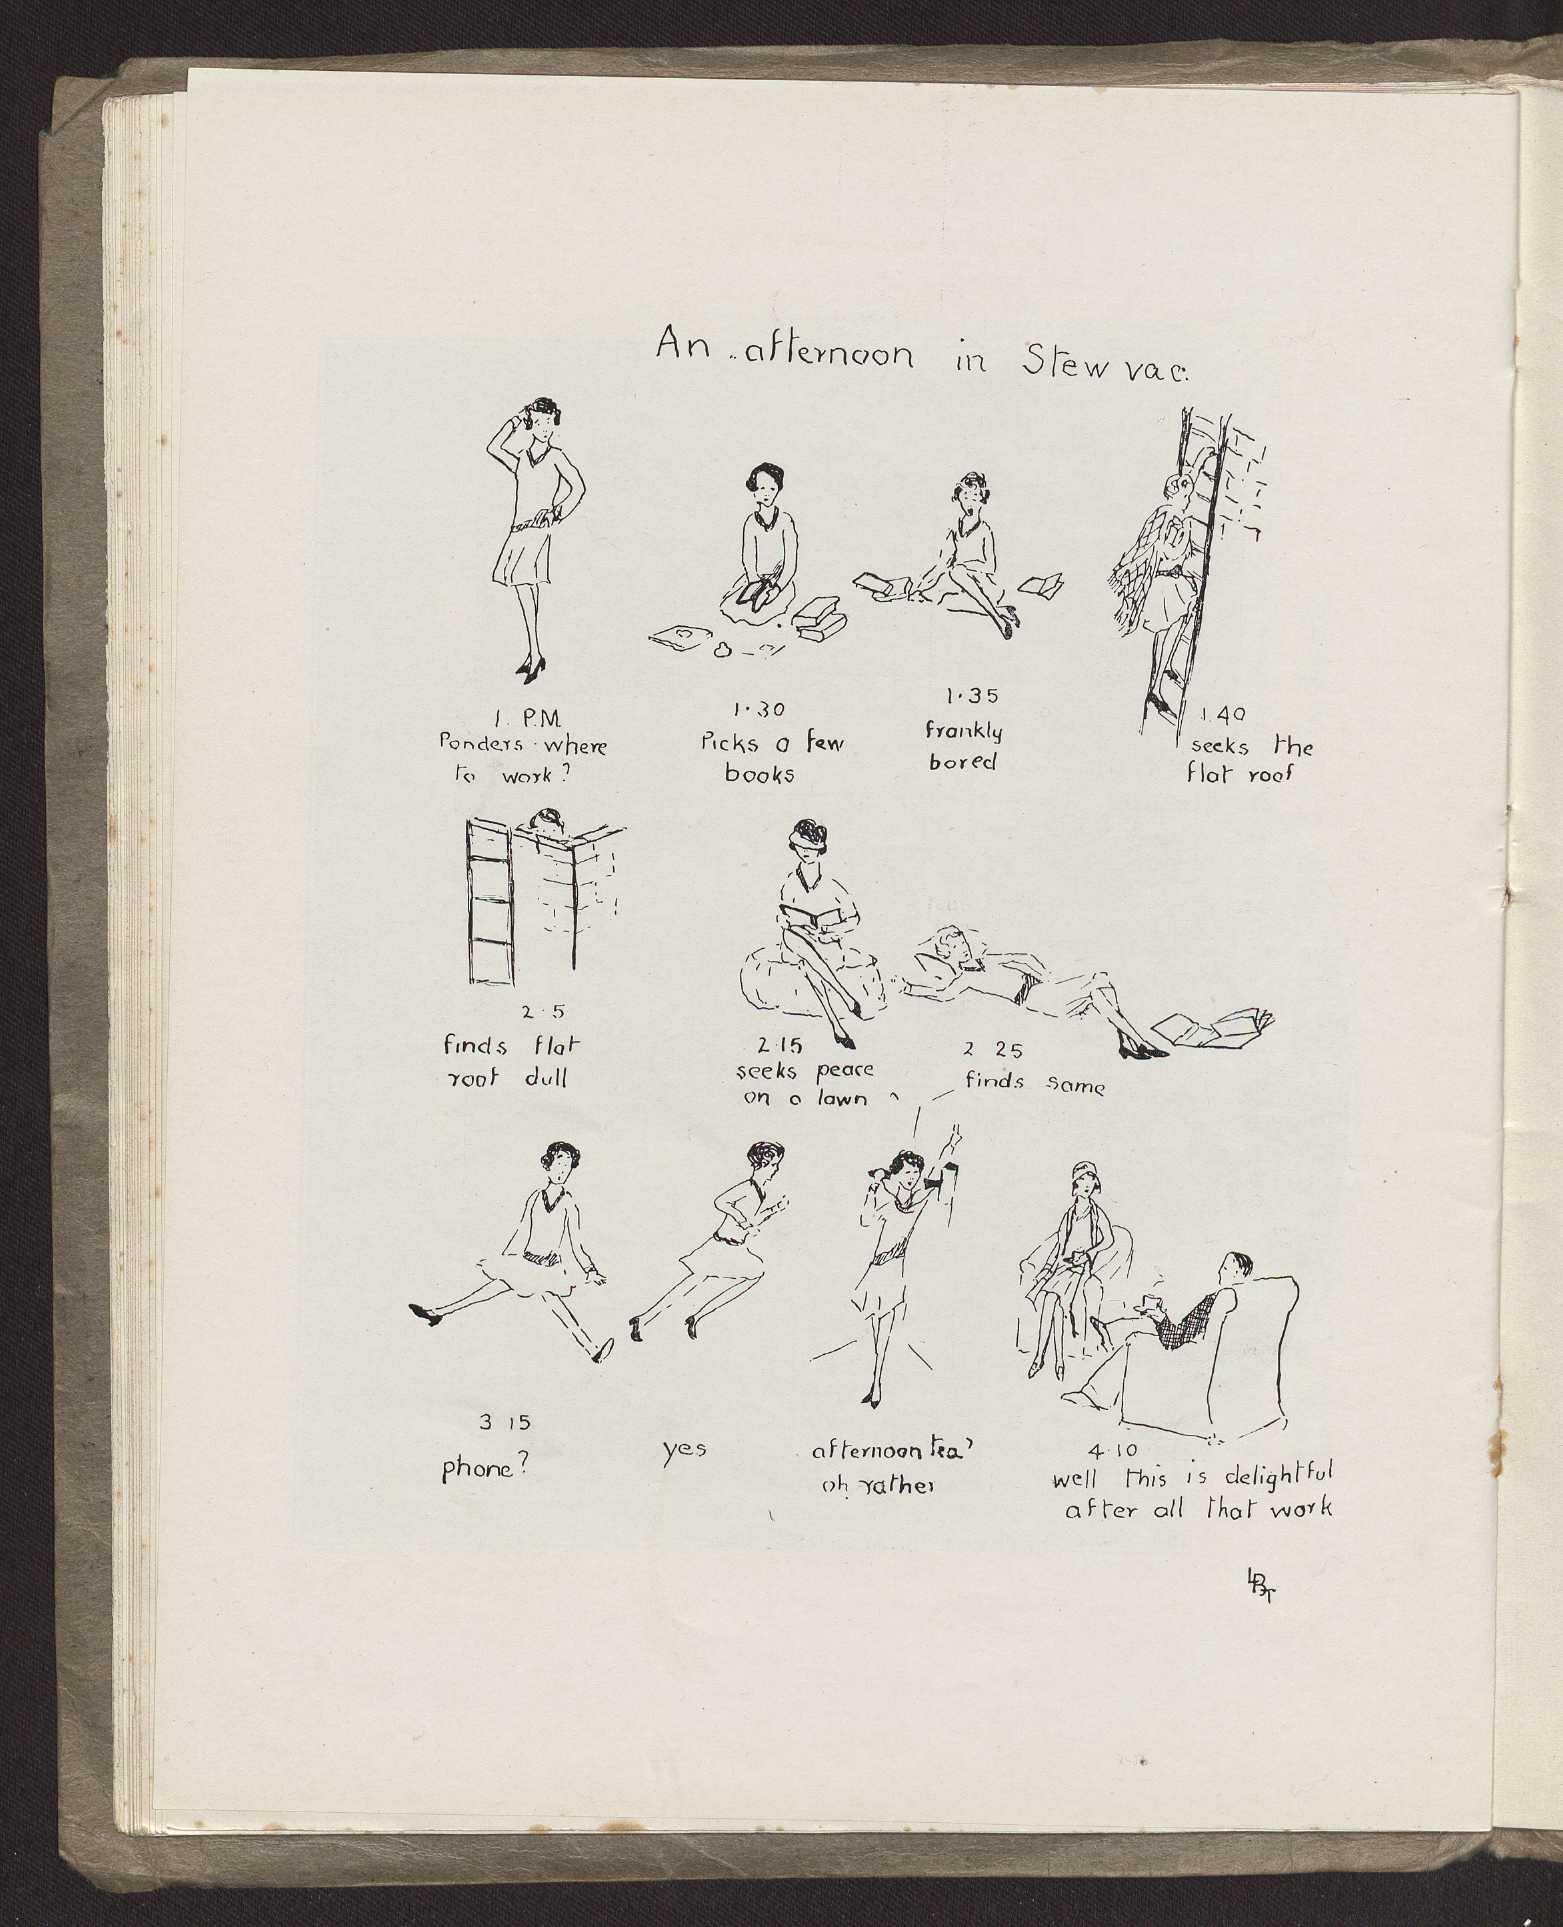 An afternoon in Stew vac.
1. P.M.
Ponders where
to work?
1.30
Picks a few
books
1.35
frankly
bored
1.40
seeks the
flat roof
2.5
finds flat
roof dull
2.15
seeks peace
on a lawn
2 25
finds same
3 15
phone?
yes
afternoon tea?
oh rather
4.10
well this is delightful
after all that work
LBT